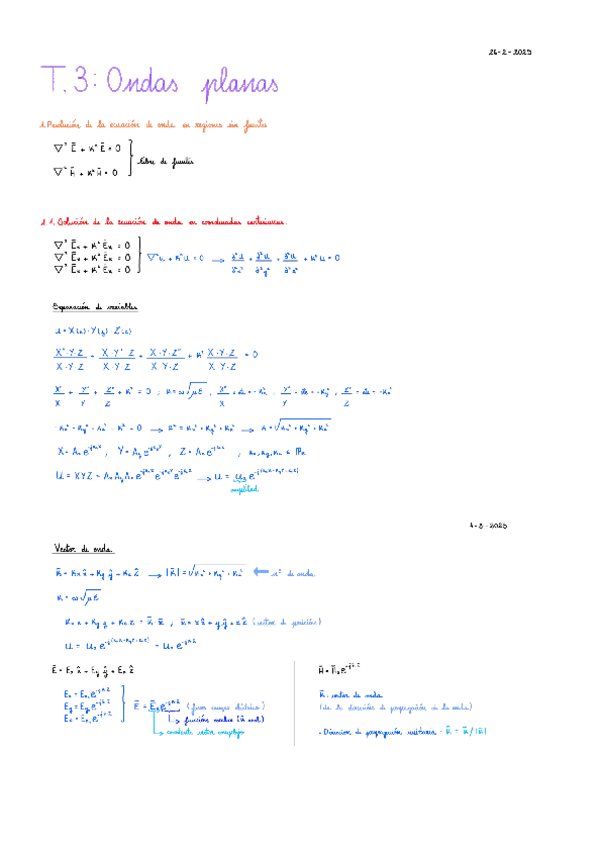 26-2-2025
T.3: Ondas planas
1. Resolución de la ecuación de onda en regiones sin fuentes
∇² Ē + K² Ē = 0
∇² H̄ + K² H̄ = 0 } libre de fuentes
1.1. Solución de la ecuación de onda en coordenadas cartesianas.
∇² Ēx + K² Ēx = 0
∇² Ēx + K² Ēx = 0 } ∇²u + K²u = 0 → ∂²u/∂²x + ∂²u/∂²y + ∂²u/∂²z + K²u = 0
∇² Ēx + K² Ēx = 0
Separación de variables
u = X(x) · Y(y) · Z(z)
X''·Y·Z / X·Y·Z + X·Y''·Z / X·Y·Z + X·Y·Z'' / X·Y·Z + K² X·Y·Z / X·Y·Z = 0
X''/X + Y''/Y + Z''/Z + K² = 0 ; K = ω√με , X''/X = cte = -Kx² , Y''/Y = cte = -Ky² , Z''/Z = cte = -Kz²
-Kx² - Ky² - Kz² + K² = 0 → K² = Kx² + Ky² + Kz² → K = √Kx² + Ky² + Kz²
X = Ax e^-jKxX , Y = Ay e^-jKyY , Z = Az e^-jKzZ , Kx, Ky, Kz ∈ ℝ
U = XYZ = Ax Ay Az e^-jKxX e^-jKyY e^-jKzZ → U = u₀ e^-j(KxX+KyY+KzZ)
amplitud
4-3-2025
Vector de onda.
K̄ = Kx x̂ + Ky ŷ + Kz ẑ → |K̄| = √Kx² + Ky² + Kz² ← nº de onda.
K = ω√με
Kx x + Ky y + Kz z = K̄ · R̄ , R̄ = x x̂ + y ŷ + z ẑ (vector de posición)
u = u₀ e^-j(KxX+KyY+KzZ) = u₀ e^-jK̄R̄
Ē = Ex x̂ + Ey ŷ + Ez ẑ
Ex = Ex₀ e^-jK̄R̄
Ey = Ey₀ e^-jK̄R̄ } Ē = Ē₀ e^-jK̄R̄ (fasor campo eléctrico)
Ez = Ez₀ e^-jK̄R̄ ↳ función escalar (K real)
↳ constante vector complejo
H̄ = H̄₀ e^-jK̄R̄
K̄: vector de onda
(da la dirección de propagación de la onda)
· Dirección de propagación unitaria: K̂ = K̄/|K̄|